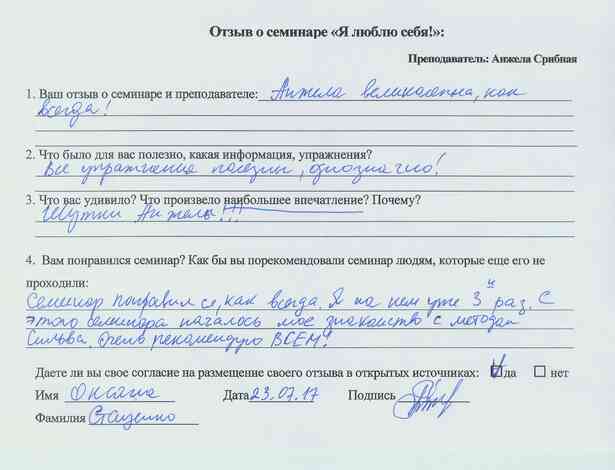 Отзыв о семинаре «Я люблю себя!»:
Преподаватель: Анжела Срибная
1. Ваш отзыв о семинаре и преподавателе: Анжела великолепна, как
всегда!
2. Что было для вас полезно, какая информация, упражнения?
Все упражнения полезны, однозначно!
3. Что вас удивило? Что произвело наибольшее впечатление? Почему?
Шутки Анжелы!!!
4. Вам понравился семинар? Как бы вы порекомендовали семинар людям, которые еще его не
проходили:
Семинар понравился, как всегда. Я на нем уже 3й раз. С
этого семинара началось мое знакомство с методом
Сильва. Очень рекомендую ВСЕМ!
Даете ли вы свое согласие на размещение своего отзыва в открытых источниках: да нет
Имя Оксана Дата 23.07.17 Подпись
Фамилия Стаценко